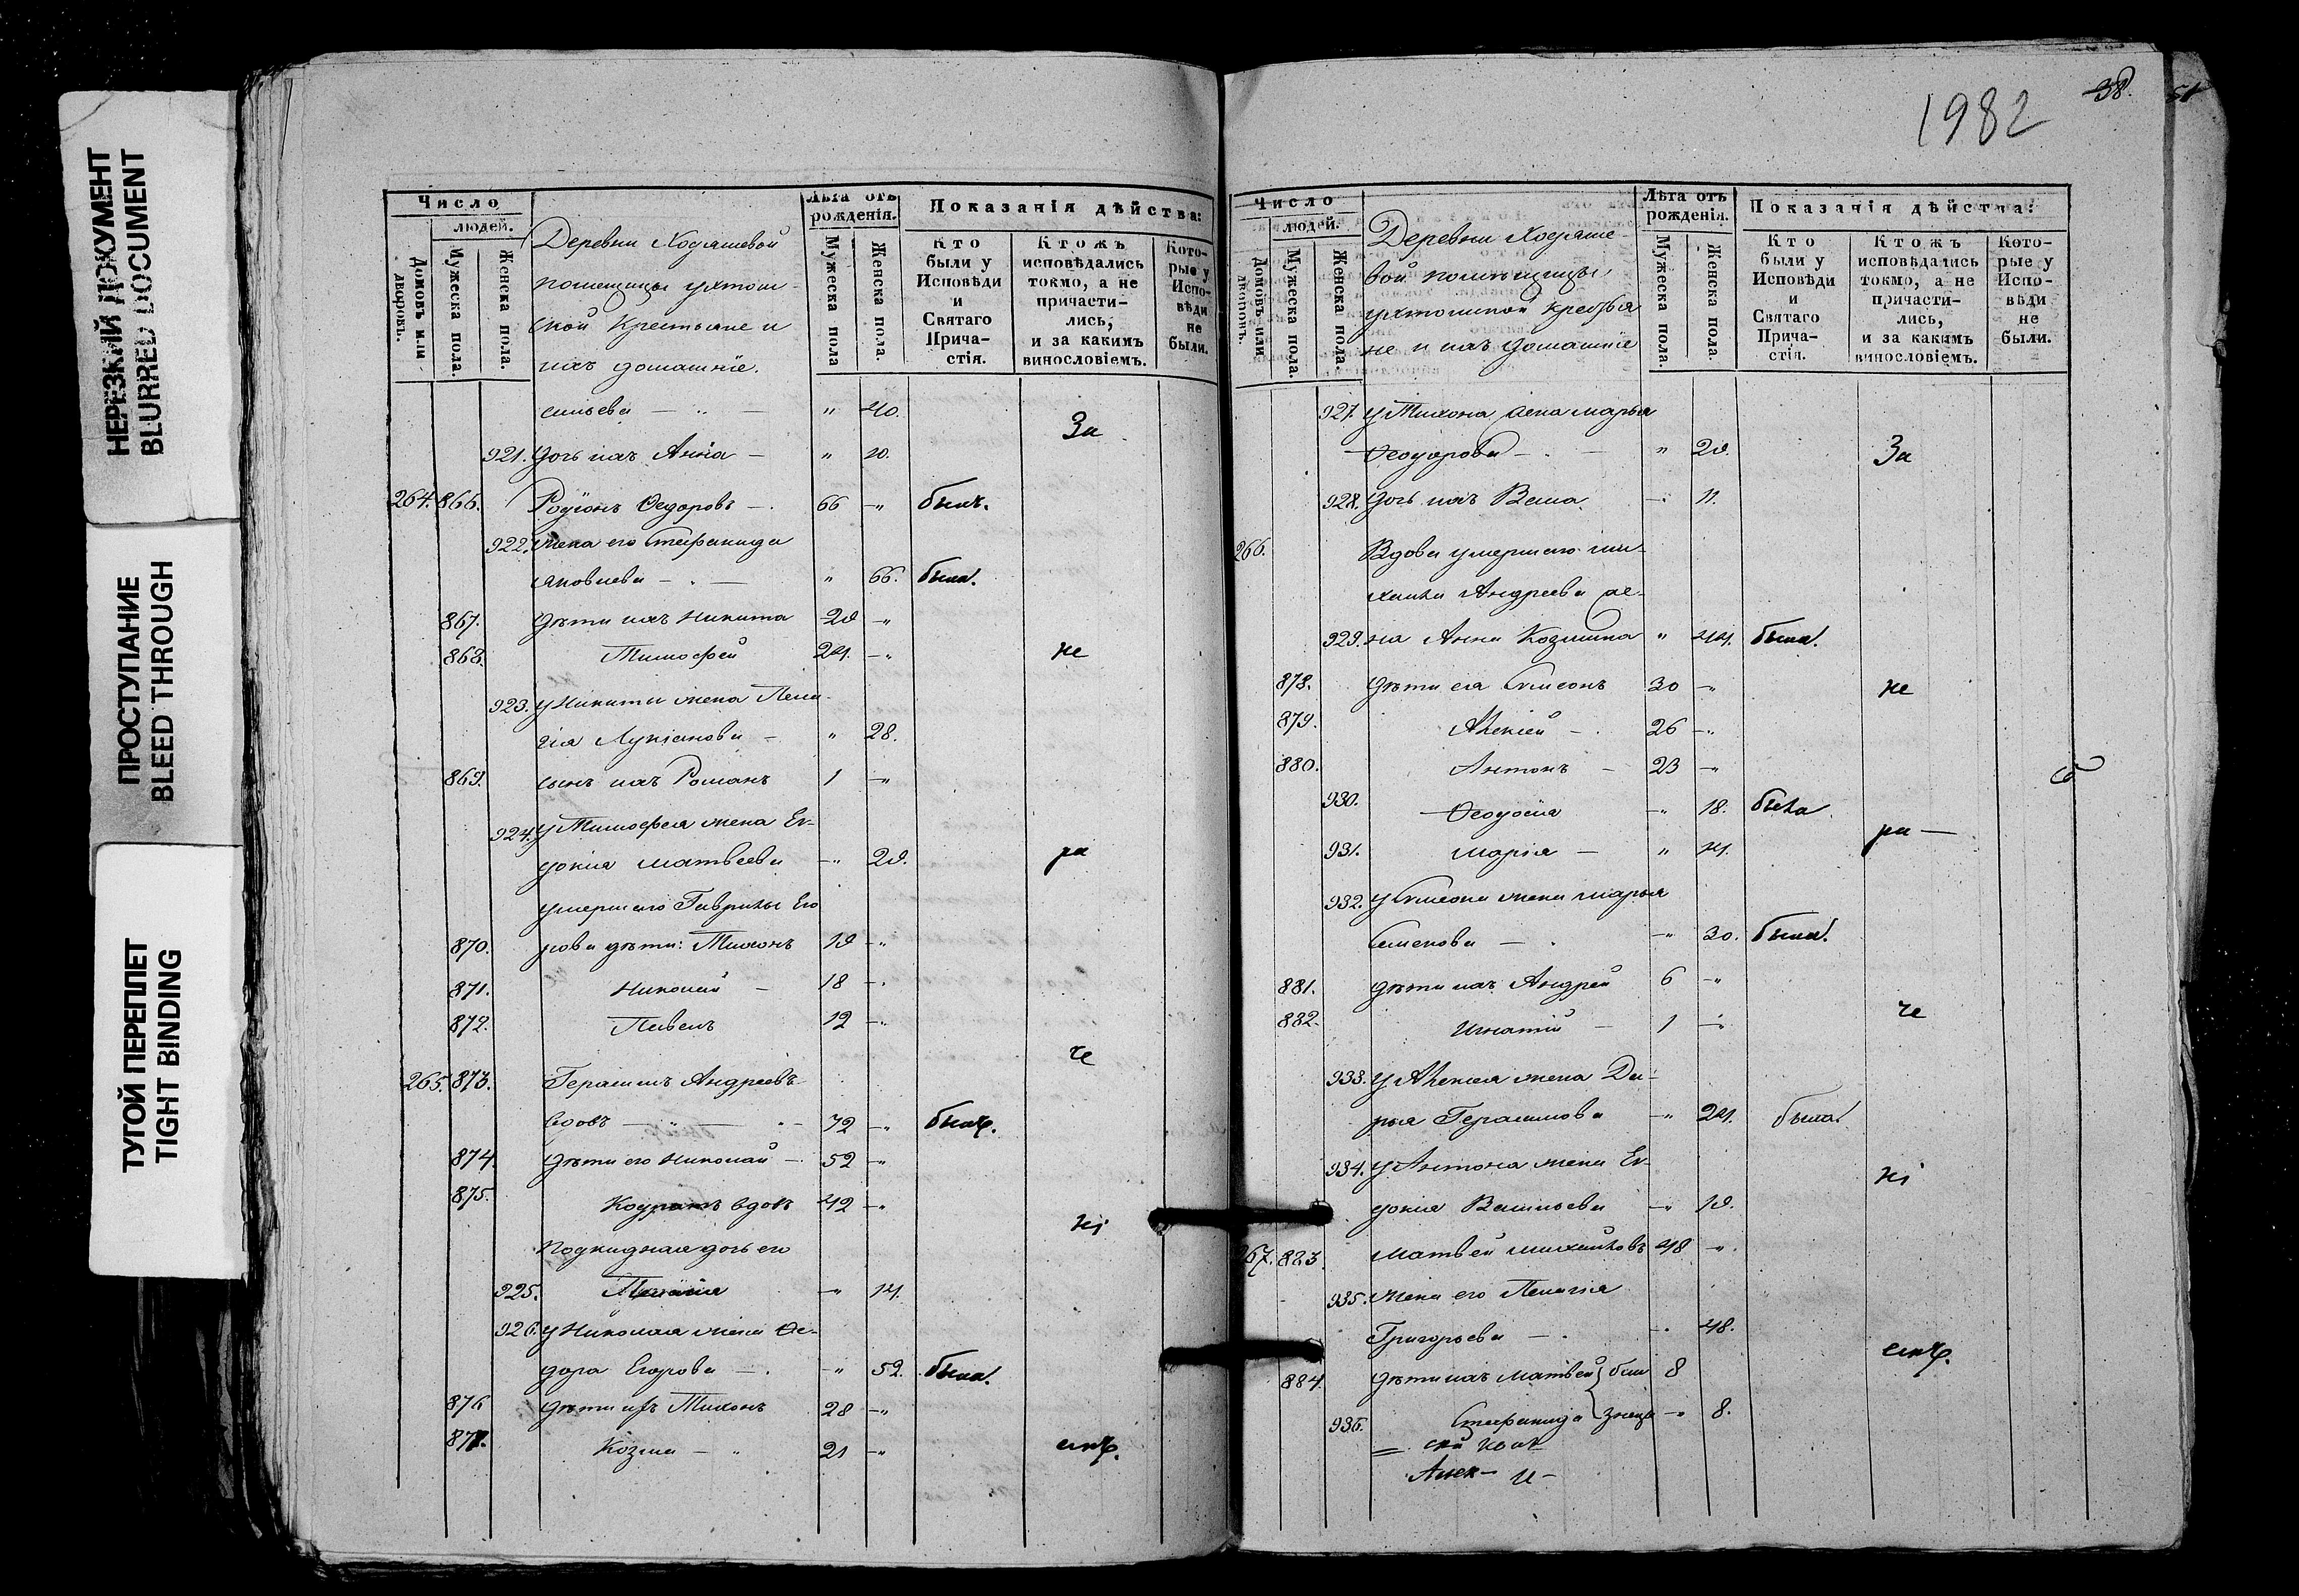 НЕРЕЗКИЙ ДОКУМЕНТ
BLURRED DOCUMENT
ПРОСТУПАНИЕ
BLEED THROUGH
ТУГОЙ ПЕРЕПЛЕТ
TIGHT BINDING
Число
людей.
Домовъ или дворовъ.
Мужеска пола.
Женска пола.
Деревни Кодяшевой
помещицы Ухтом-
ской Крестьяне и
ихъ домашніе.
Лѣта отъ рожденія.
Мужеска пола
Женска пола.
Показанія дѣйства:
Кто были у Исповѣди и Святаго Прича-стія.
Ктожъ исповѣдались токмо, а не причасти-лись, и за какимъ винословіемъ.
Кото-рые у Испо-вѣди не были.
сильева — " — " 40.
За
921. дочь ихъ Анна — " 10.
264. 866. Родіонъ Ѳедоровъ — 66 —" былъ.
922. жена его Стефанида
яковлева — " 66. была.
867. дѣти ихъ Никита 29 —"
868. Тимофей 24. —" не
923. у Никиты жена Пела-
гія Лукіанова — " 28.
869. сынъ ихъ Романъ 1 —"
924. у Тимофея жена Ев-
докия Матвеева —" 29. ра
умершаго Гаврилы Его
рова дѣти: Тихонъ 19 —"
870.
871. Николай — 18 —"
872. Павелъ 12 —"
че
265. 873. Герасимъ Андреевъ
вдовъ — " — 72 —" былъ.
874. дѣти его Николай — 52 —"
875. Кодратъ вдовъ 42 —"
ні
Подкидная дочь его
925. —" 14.
926. у Николая жена Ѳе-
дора Егорова — —" 52. была.
876 дѣти ихъ Тихонъ 28 —"
877. Козма — " 21 —" емъ.
1982
38.
51
Число
людей.
Домовъ или дворовъ.
Мужеска пола.
Женска пола.
Деревни Кодяше
вой помѣщицы
Ухтомской Крестья
не и ихъ домашніе
Лѣта отъ рожденія.
Мужеска пола.
Женска пола.
Показанія дѣйства:
Кто были у Исповѣди и Святаго Прича-стія.
Ктожъ исповѣдались токмо, а не причасти-лись, и за какимъ винословіемъ.
Кото-рые у Испо-вѣди не были.
927. у Тихона жена марья
Ѳеодорова — " 29. За
928. дочь ихъ Васса —" 11.
266. Вдова умершаго ми-
хаила Андреева же-
929. на Анна Козмина " 44. была.
878. дѣти ея Симеонъ 30 —" не
879. Алексей — 26 —"
880. Антонъ — 23 —"
930. Ѳеодосія —" 18. была
ра —
931. Марія — " 14.
932. у Симеона жена марья
Семенова — —" 30. была.
881. дѣти ихъ Андрей 6 —"
882. Игнатій — 1 —"
че
933. у Алексея жена Да-
рья Герасимова —" 24. была
934. у Антона жена Ев-
ні
докия Васильева —" 19.
267. 823. Матвей михайловъ 48 —"
935. жена его Пелагія
Григорьева — 48.
емъ.
884. дѣти ихъ Матвей 8
936. Стефанида —" 8.